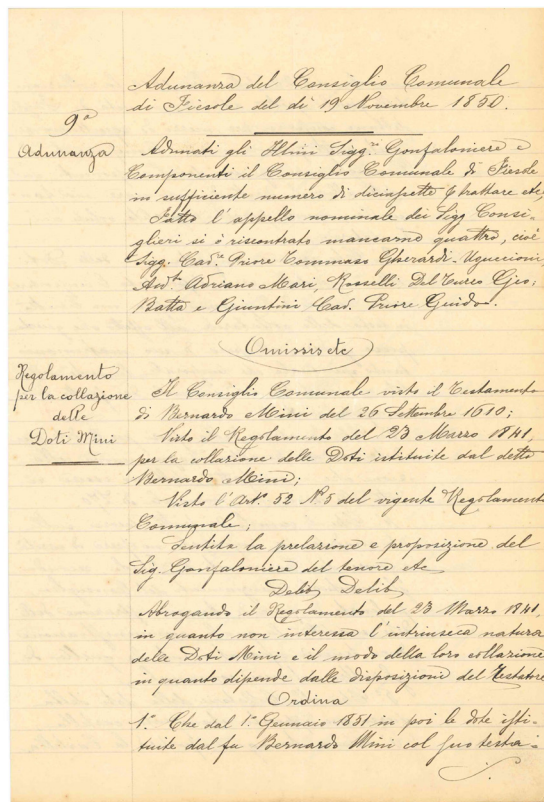 Adunanza del Consiglio Comunale
di Fiesole del dì 19 Novembre 1850.
9ª
Adunanza
Adunati gli Illmi Sigg.ri Gonfaloniere e
Componenti il Consiglio Comunale di Fiesole
in sufficiente numero di diciasette p trattare etc,
Fatto l'appello nominale dei Sigg Consi-
glieri si è riscontrato mancarne quattro, cioè
Sigg. Cav.re Priore Tommaso Gherardi-Uguccioni,
Avv.to Adriano Mari, Rosselli Del Turco Gio:
Batta e Giuntini Cav. Priore Guido.
Omissis etc
Regolamento
per la collazione
delle
Doti Mini
Il Consiglio Comunale visto il Testamento
di Bernardo Mini del 26 Settembre 1610;
Visto il Regolamento del 23 Marzo 1841,
per la collazione delle Doti istituite dal detto
Bernardo Mini;
Visto l'Art.º 52 Nº5 del vigente Regolament
Comunale;
Sentita la prelazione e proposizione del
Sig. Gonfaloniere del tenore etc
Delib Delib
Abrogando il Regolamento del 23 Marzo 1841,
in quanto non interessa l'intrinseca natura
delle Doti Mini e il modo della loro collazione
in quanto dipende dalle disposizioni del Testatore
Ordina
1.º Che dal 1.º Gennaio 1851 in poi le dote isti-
tuite dal fu Bernardo Mini col suo testa-